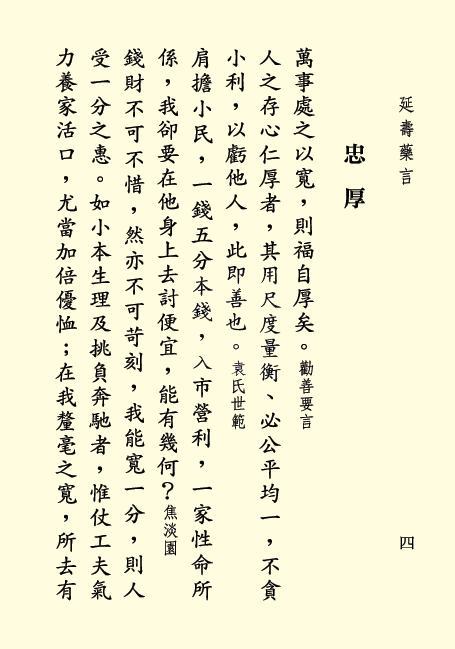 延壽藥言
四
忠厚
萬事處之以寬，則福自厚矣。勸善要言
人之存心仁厚者，其用尺度量衡、必公平均一，不貪
小利，以虧他人，此即善也。袁氏世範
肩擔小民，一錢五分本錢，入市營利，一家性命所
係，我卻要在他身上去討便宜，能有幾何？焦淡園
錢財不可不惜，然亦不可苛刻，我能寬一分，則人
受一分之惠。如小本生理及挑負奔馳者，惟仗工夫氣
力養家活口，尤當加倍優恤；在我釐毫之寬，所去有